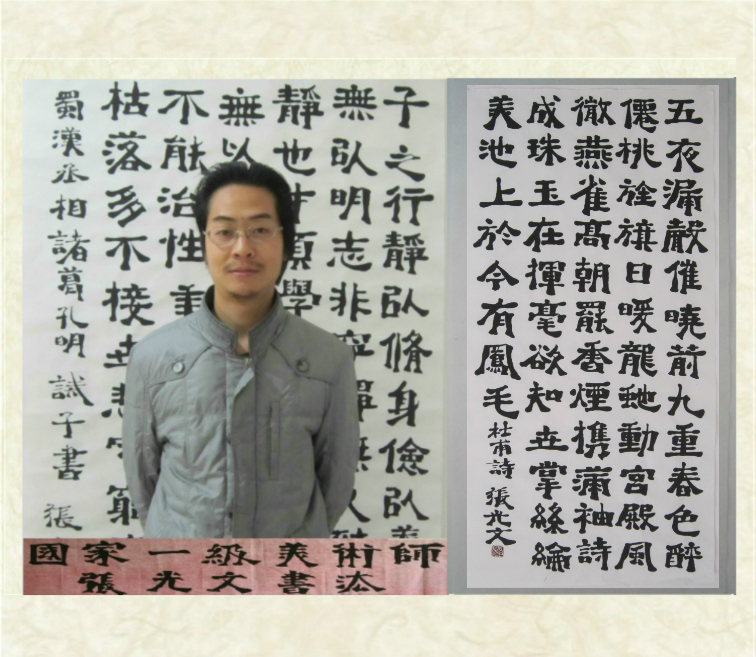 子之行靜以脩身儉以養
無以明志非寧靜無以致
靜也才須學
無以
不能治性
枯落多不接世悲守窮
蜀漢丞相諸葛孔明誡子書 張
國家一級美術師
張光文書法
五夜漏聲催曉箭九重春色醉
僊桃旌旗日暖龍蛇動宮殿風
微燕雀高朝罷香煙携滿袖詩
成珠玉在揮毫欲知世掌絲綸
美池上於今有鳳毛 杜甫詩 張光文